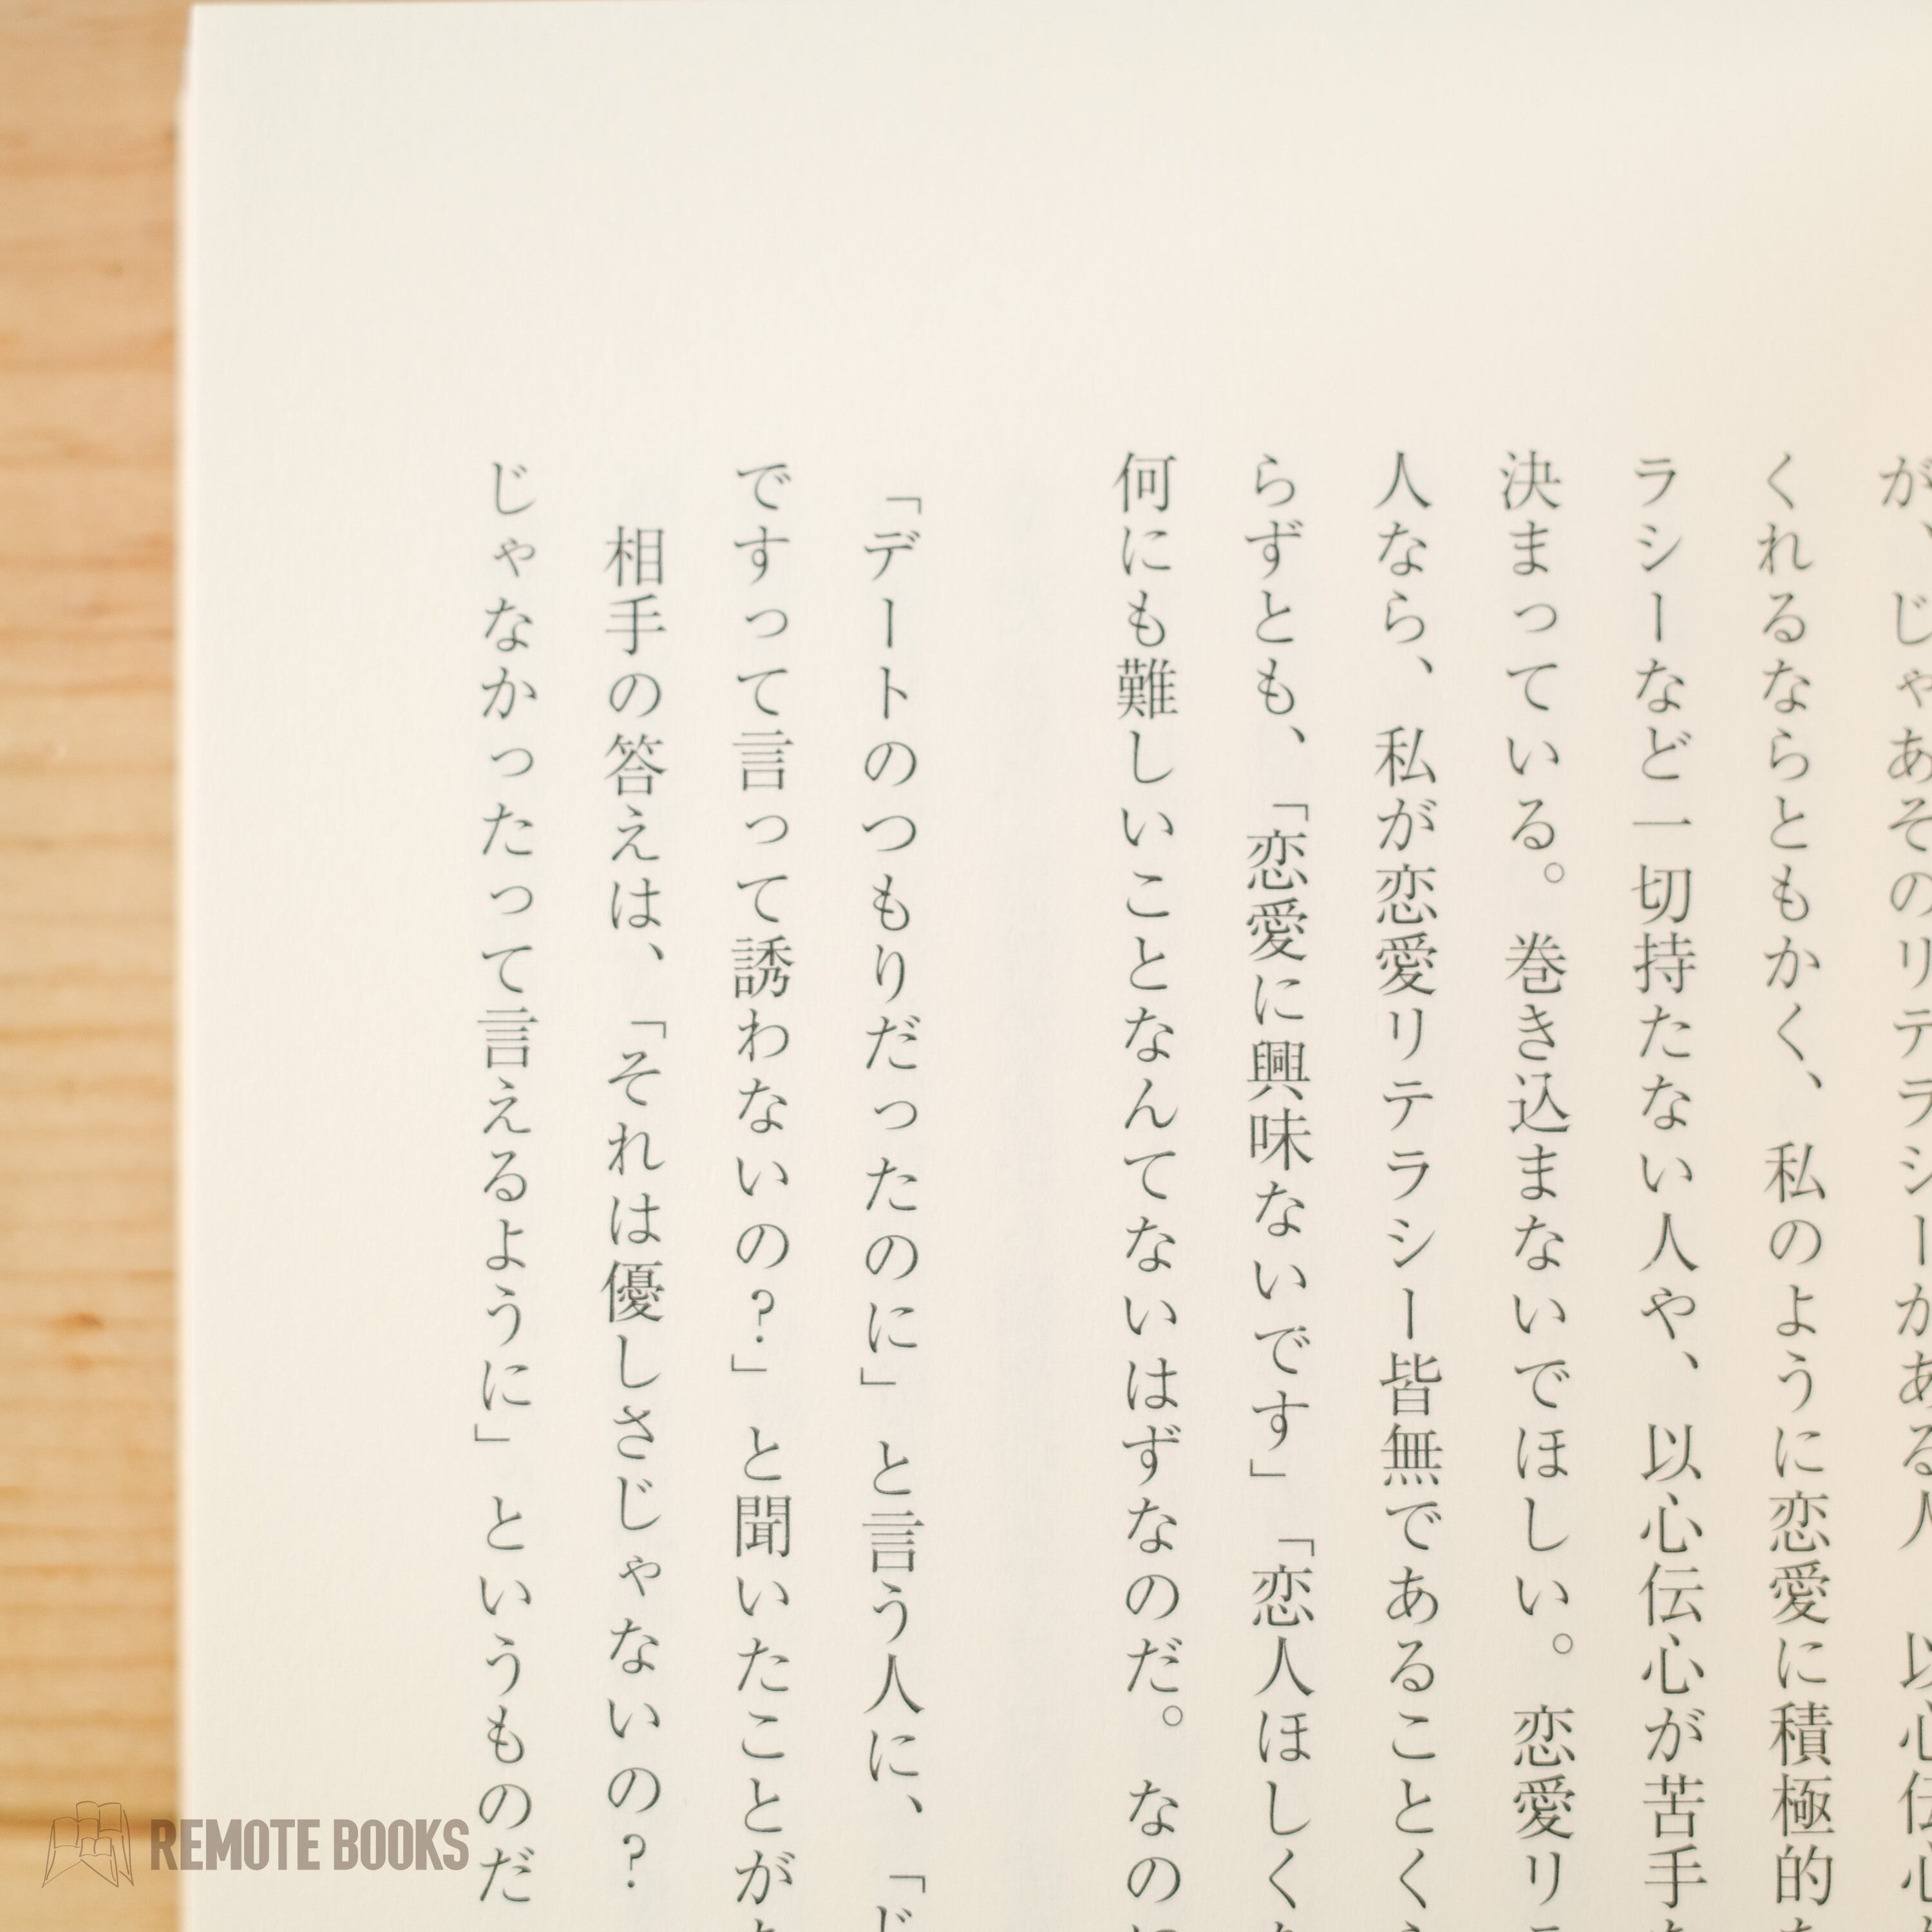 が、じゃあそのリテラシーがある人 以心伝心
くれるならともかく、私のように恋愛に積極的
ラシーなど一切持たない人や、以心伝心が苦手
決まっている。巻き込まないでほしい。恋愛リ
人なら、私が恋愛リテラシー皆無であることく
らずとも、「恋愛に興味ないです」「恋人ほしく
何にも難しいことなんてないはずなのだ。なの
「デートのつもりだったのに」と言う人に、「ど
ですって言って誘わないの?」と聞いたことが
相手の答えは、「それは優しさじゃないの?
じゃなかったって言えるように」というものだ
REMOTE BOOKS